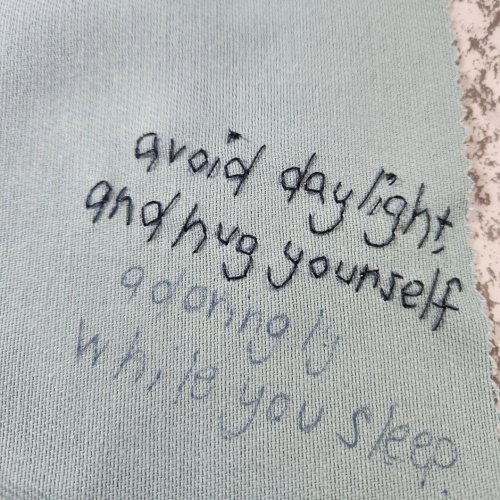 avoid daylight,
and hug yourself
adoringly
while you sleep.